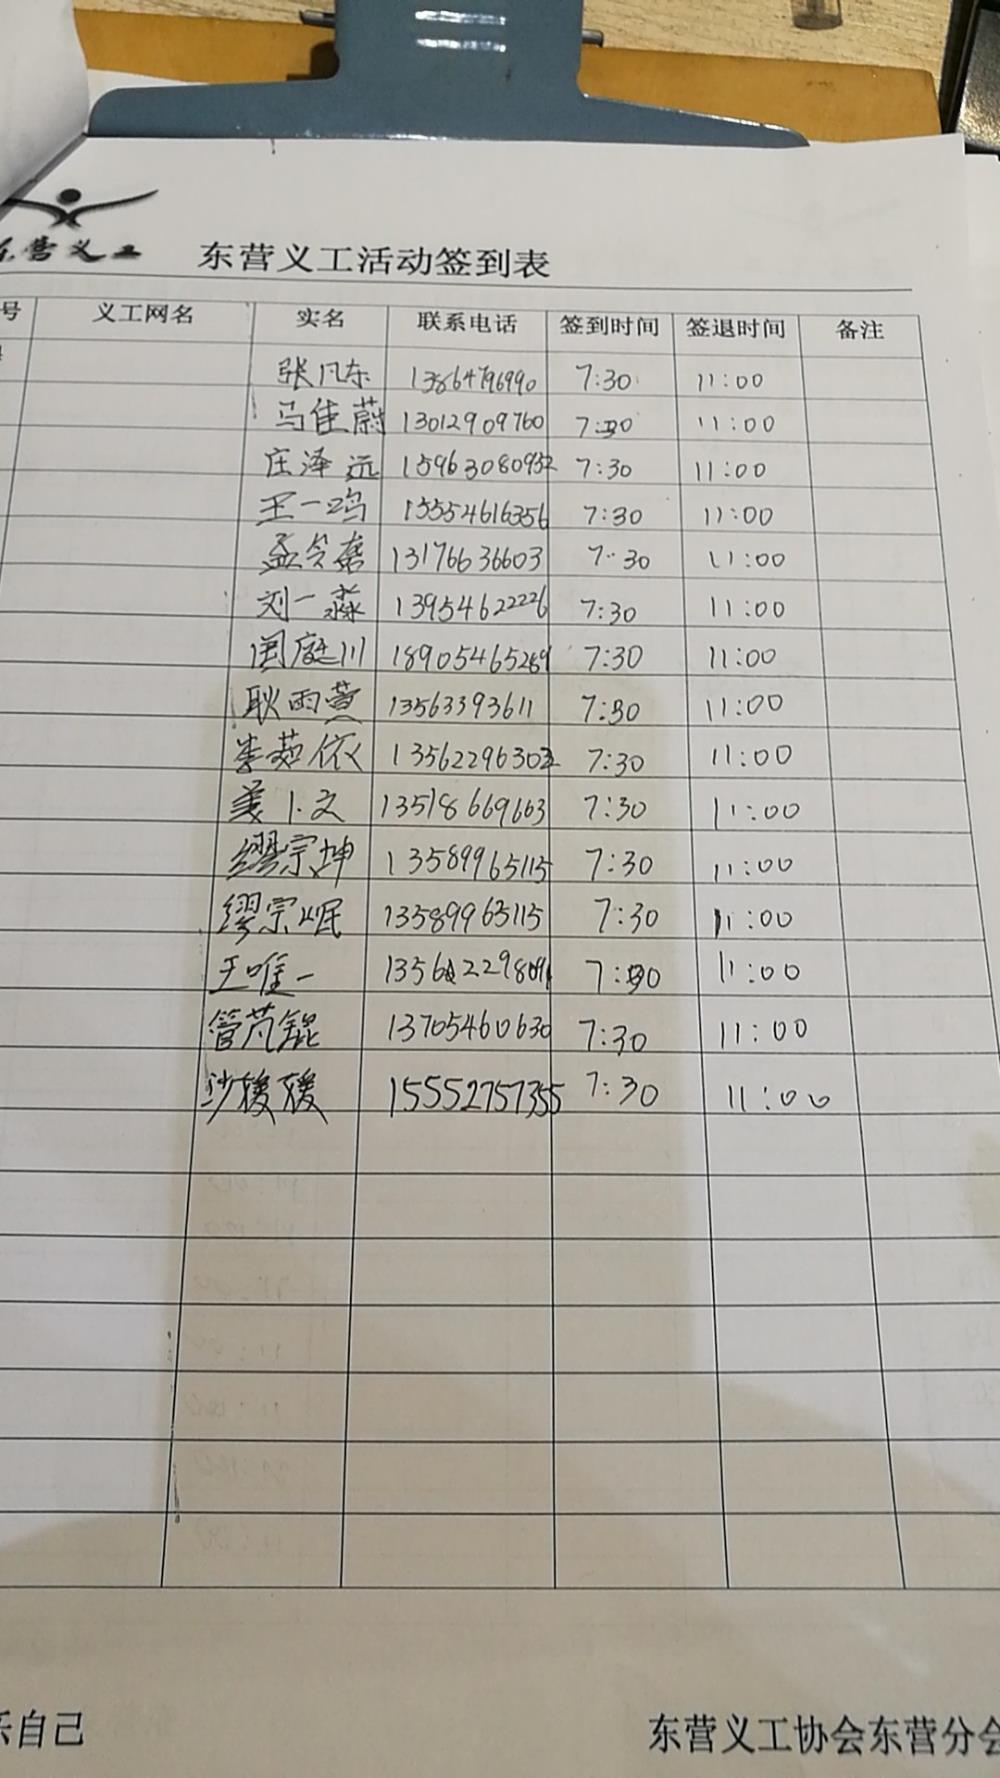 东营义工
东营义工活动签到表
号 义工网名 实名 联系电话 签到时间 签退时间 备注
张凡东 13864796990 7:30 11:00
马佳蔚 13012909760 7:30 11:00
庄泽远 15963080952 7:30 11:00
王一鸣 15554616356 7:30 11:00
孟令 13176636603 7:30 11:00
刘一淼 13954622226 7:30 11:00
闫庭川 18905465289 7:30 11:00
耿雨萱 13563393611 7:30 11:00
李茹依 13562296302 7:30 11:00
姜卜文 13518669663 7:30 11:00
缪宗坤 13589965115 7:30 11:00
缪宗岷 13589965115 7:30 11:00
王唯一 7:30 11:00
管芃锟 13705460630 7:30 11:00
沙媛媛 15552757355 7:30 11:00
乐自己
东营义工协会东营分会